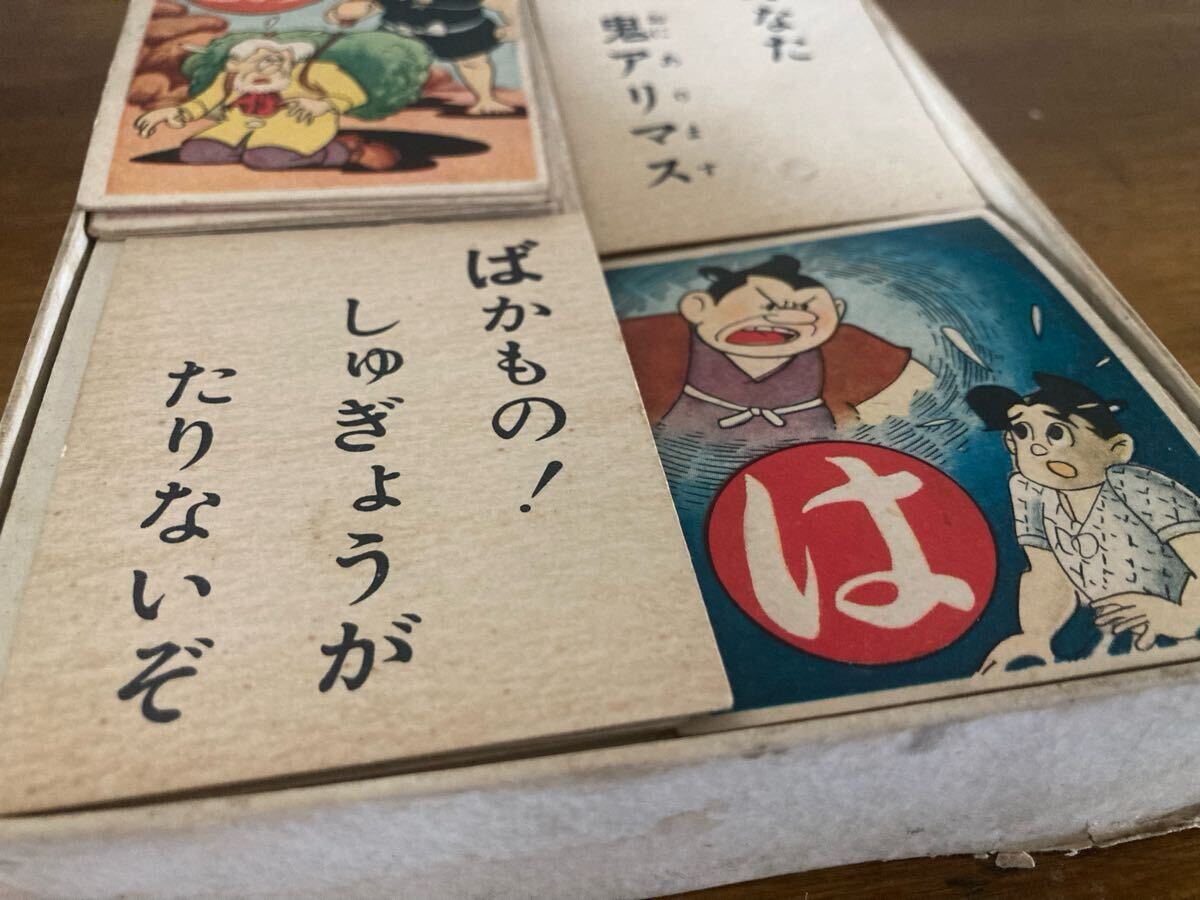 なた
鬼アリマス
おに あります
ばかもの!
しゅぎょうが
たりないぞ
は